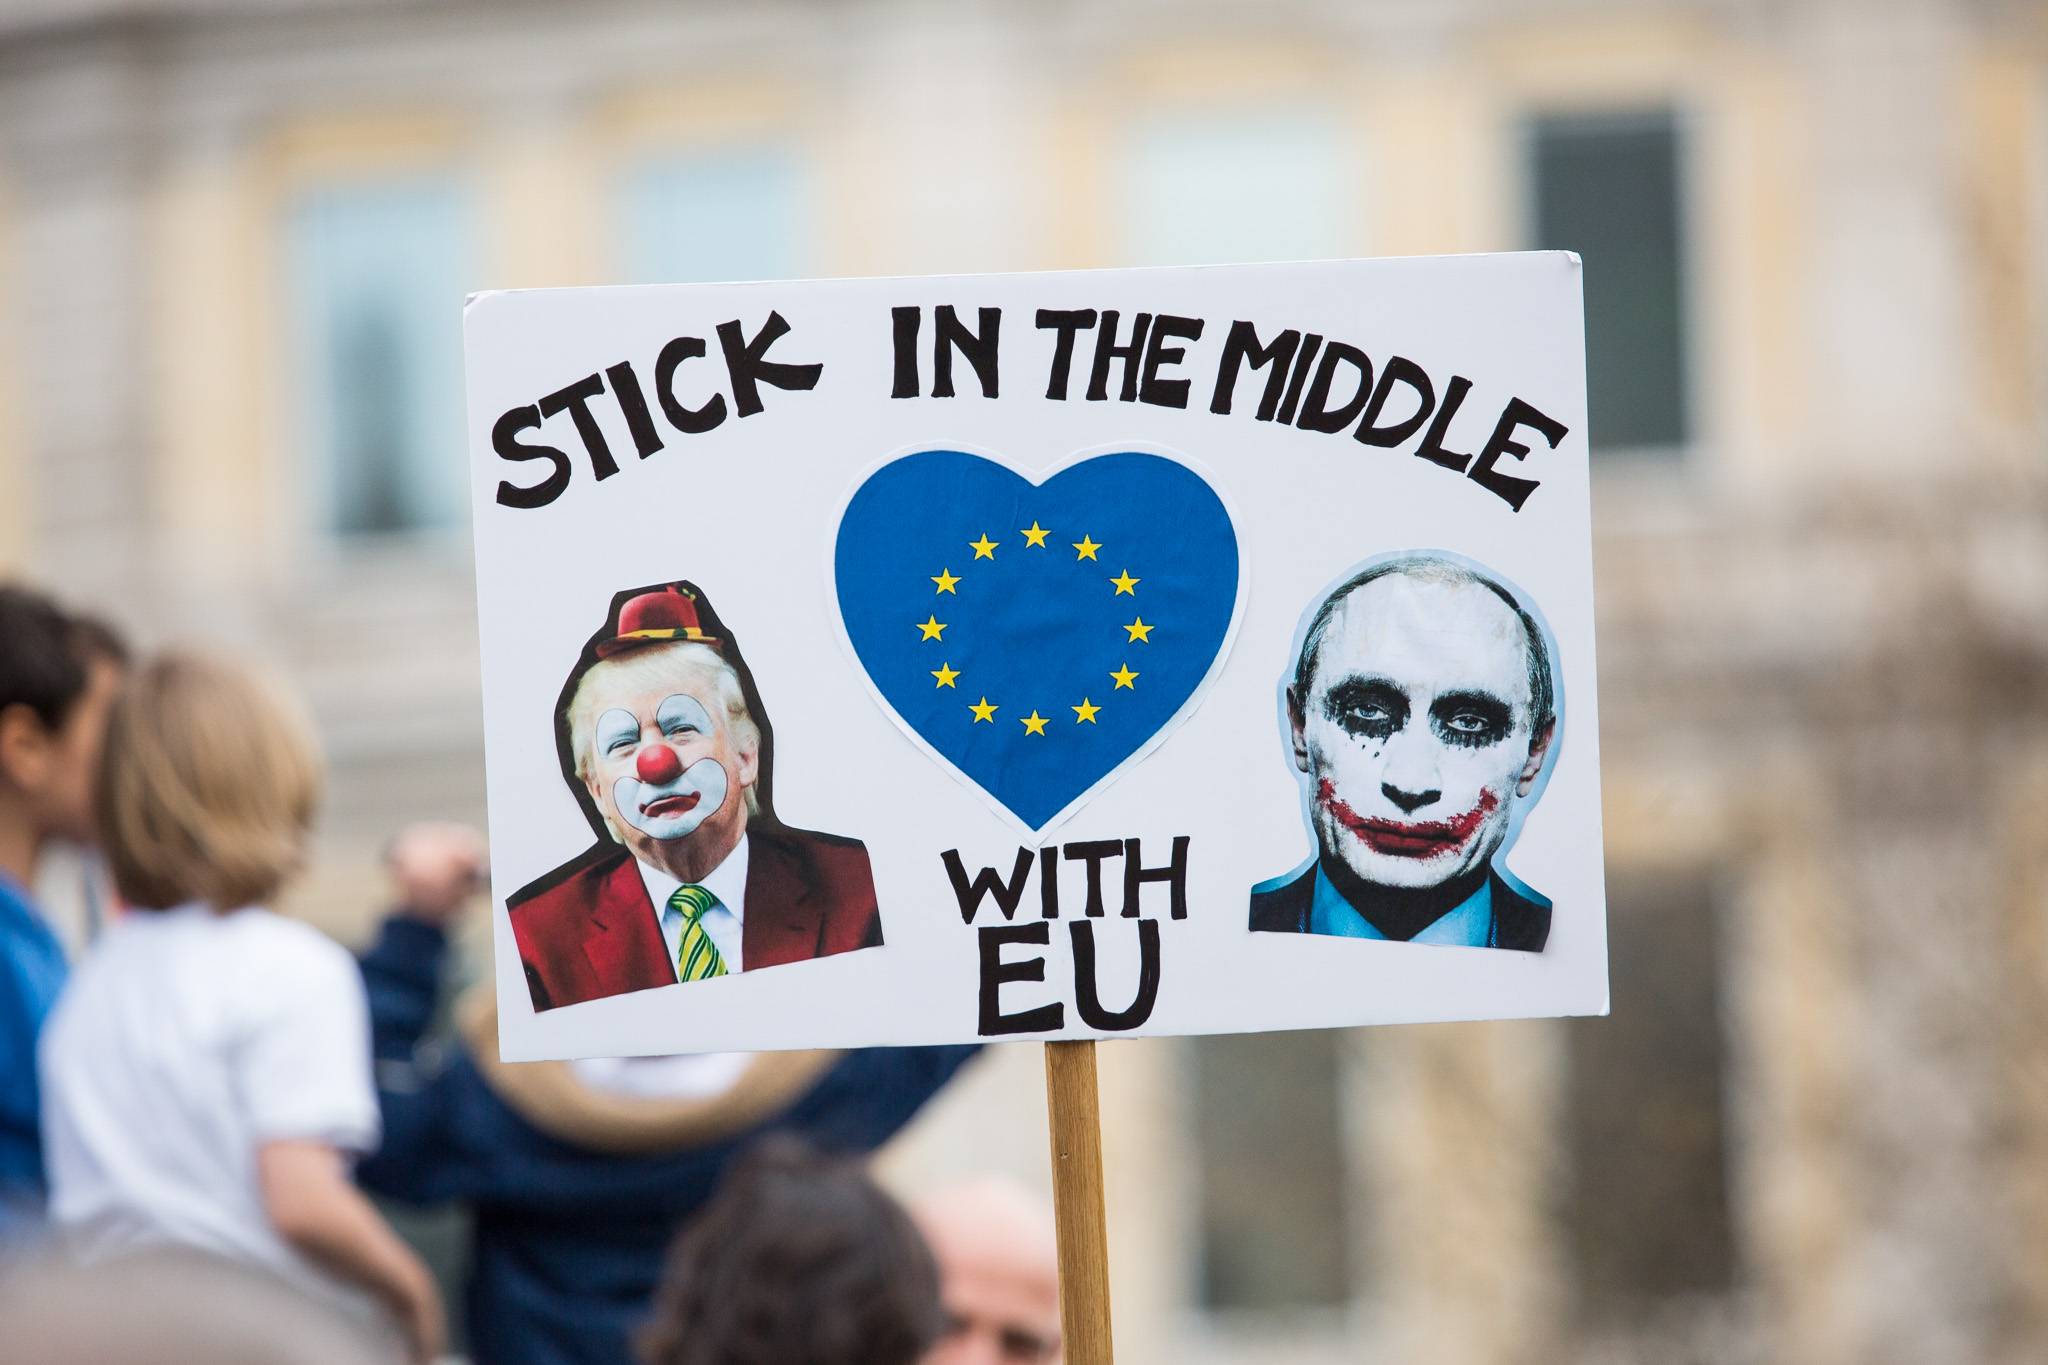 STICK IN THE MIDDLE
WITH
EU